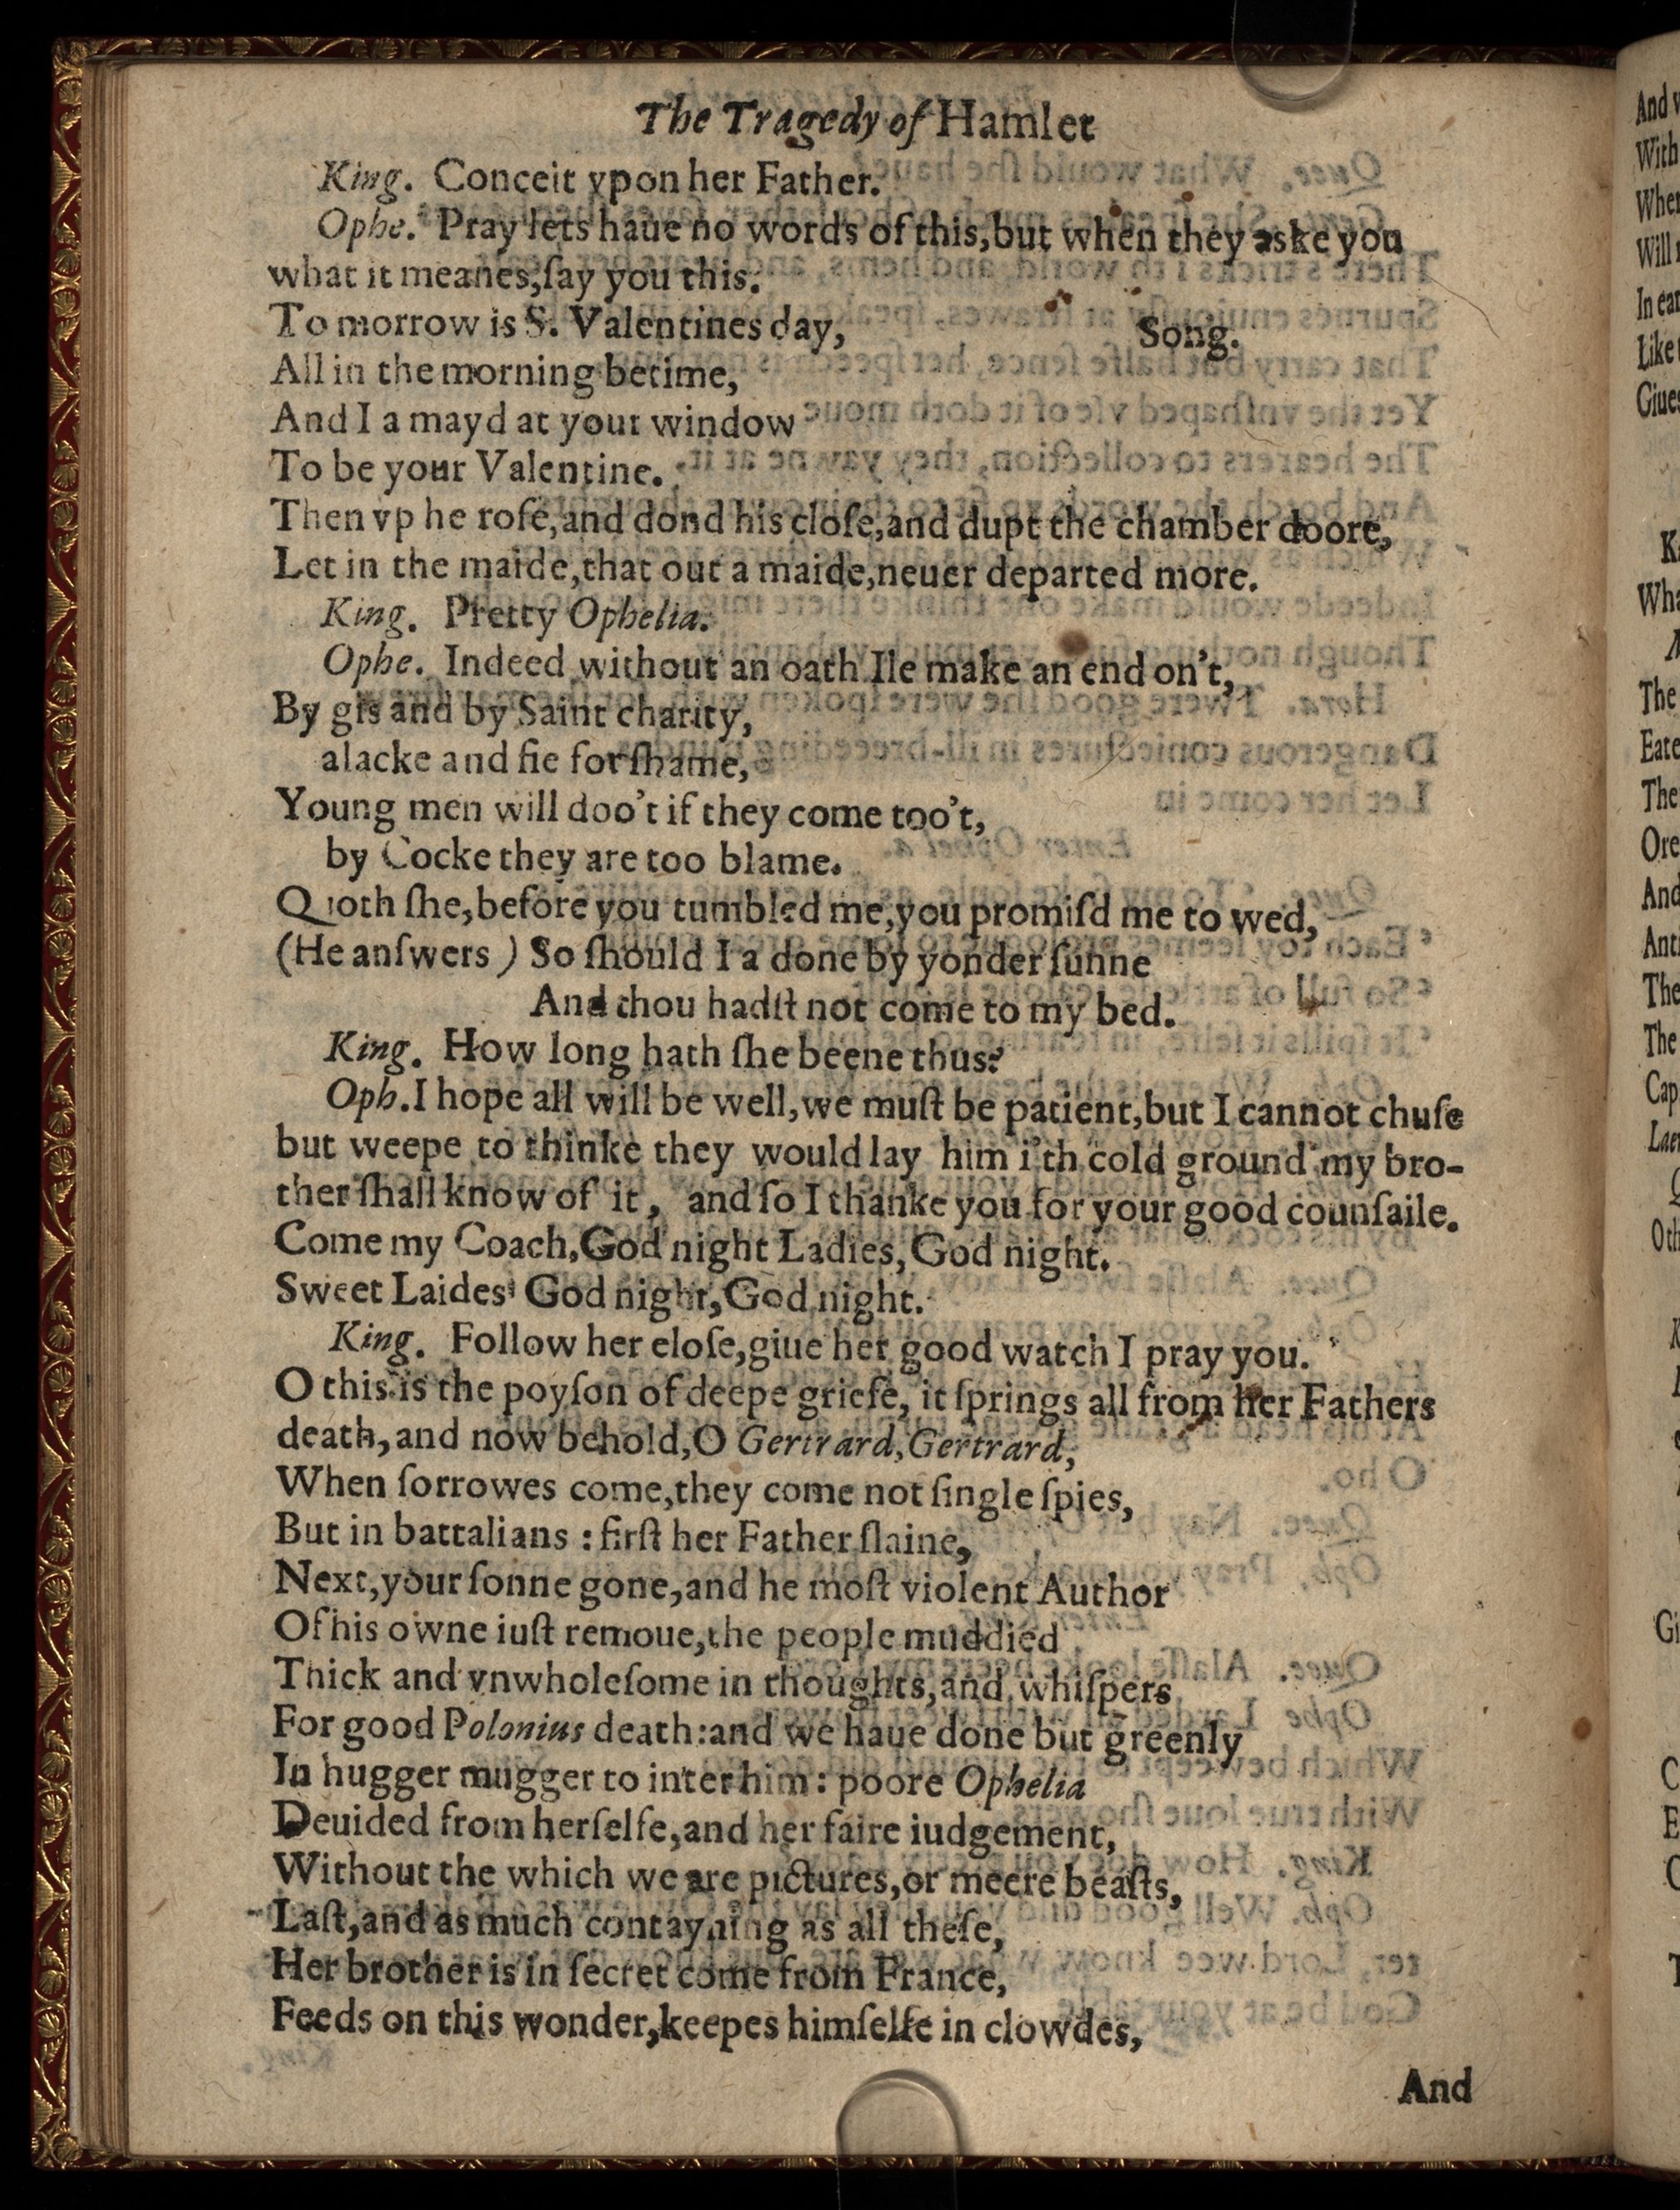 The Tragedy of Hamlet
King. Conceit vpon her Father.
Ophe. Pray lets haue no words of this,but when they aske you
what it meanes,ſay you this.
To morrow is S. Valentines day,
Song.
All in the morning betime,
And I a mayd at your window
To be your Valentine.
Then vp he roſe,and dond his cloſe,and dupt the chamber doore,
Let in the maide,that out a maide,neuer departed more.
King. Pretty Ophelia.
Ophe. Indeed without an oath Ile make an end on't,
By gis and by Saint charity,
alacke and fie for ſhame,
Young men will doo't if they come too't,
by Cocke they are too blame.
Quoth ſhe,before you tumbled me,you promiſd me to wed,
(He anſwers ) So ſhould I a done by yonder ſunne
And thou hadſt not come to my bed.
King. How long hath ſhe beene thus?
Oph.I hope all will be well,we muſt be patient,but I cannot chuſe
but weepe to thinke they would lay him i'th cold ground my bro-
ther ſhall know of it, and ſo I thanke you for your good counſaile.
Come my Coach,God night Ladies,God night.
Sweet Laides God night,God night.
King. Follow her eloſe,giue her good watch I pray you.
O this is the poyſon of deepe griefe, it ſprings all from her Fathers
death,and now behold,O Gertrard,Gertrard,
When ſorrowes come,they come not ſingle ſpies,
But in battalians : firſt her Father ſlaine,
Next,your ſonne gone,and he moſt violent Author
Of his owne iuſt remoue,the people muddied
Thick and vnwholeſome in thoughts,and whiſpers
For good Polonius death:and we haue done but greenly
In hugger mugger to inter him : poore Ophelia
Deuided from herſelfe,and her faire iudgement,
Without the which we are pictures,or meere beaſts,
Laſt,and as much contayning as all theſe,
Her brother is in ſecret come from France,
Feeds on this wonder,keepes himſelfe in clowdes,
And